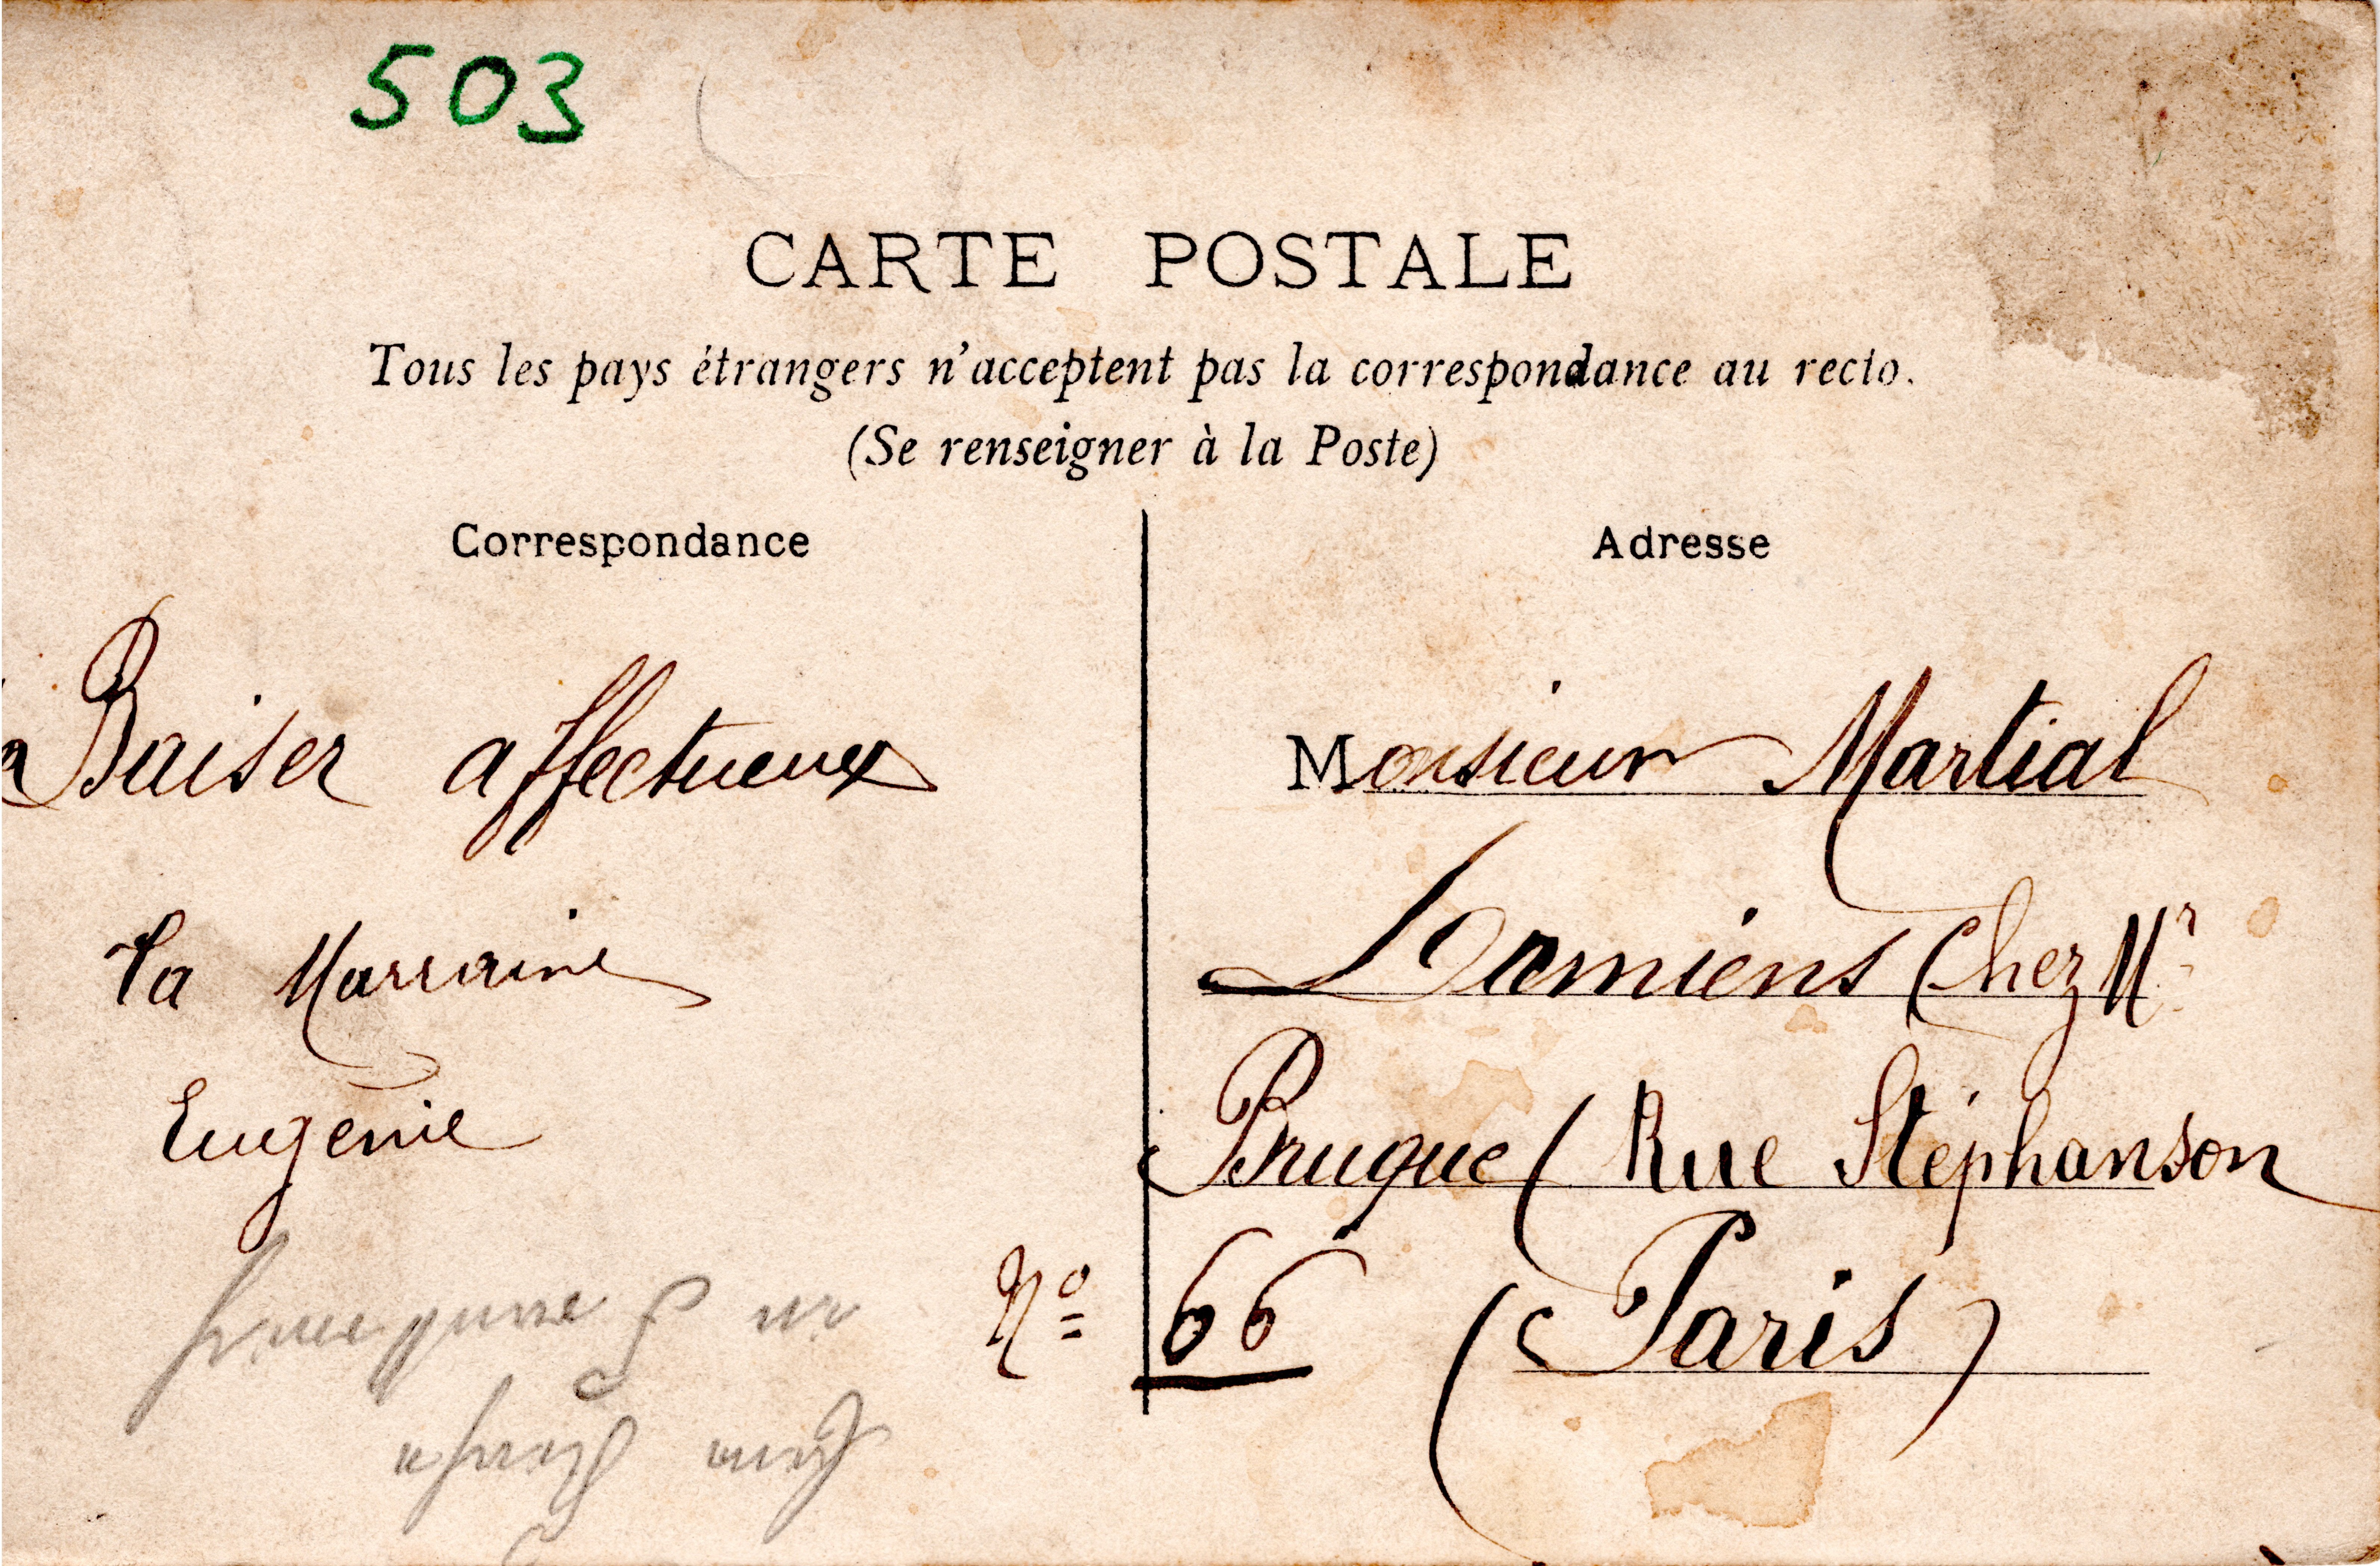 503
CARTE POSTALE
Tous les pays étrangers n'acceptent pas la correspondance au recto.
(Se renseigner à la Poste)
Correspondance
Adresse
Baiser affectueux
Ta Marraine
Eugénie
Monsieur Martial
Damiens Chez Mr
Bruque (Rue Stéphanson
No 66 (Paris)